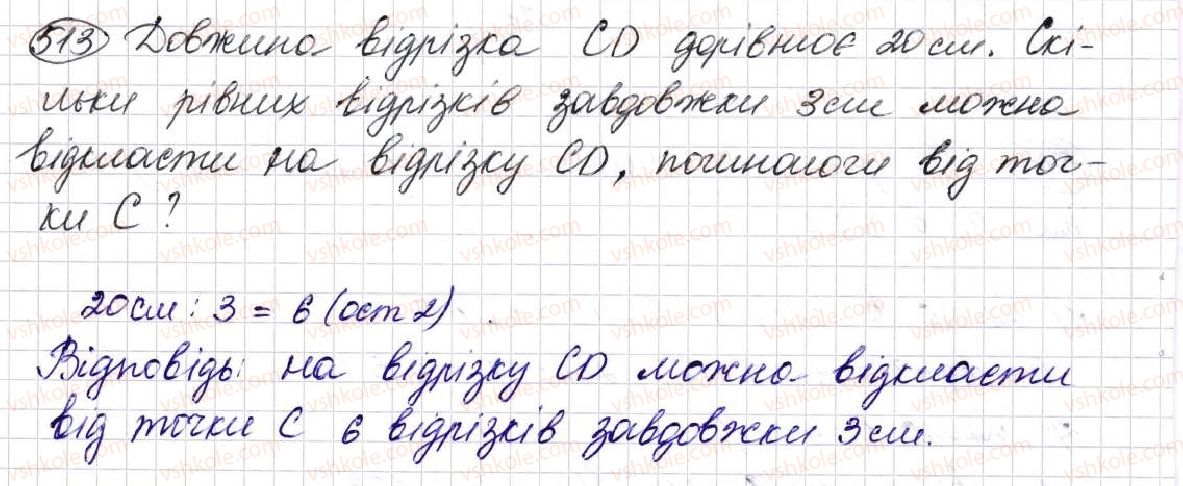 513 Довжина відрізка CD дорівнює 20 см. Скі-
льки рівних відрізків завдовжки 3 см можна
відкласти на відрізку CD, починаючи від точ-
ки C?
20см : 3 = 6 (ост 2)
Відповідь: на відрізку CD можна відкласти
від точки C 6 відрізків завдовжки 3 см.
vshkole.com